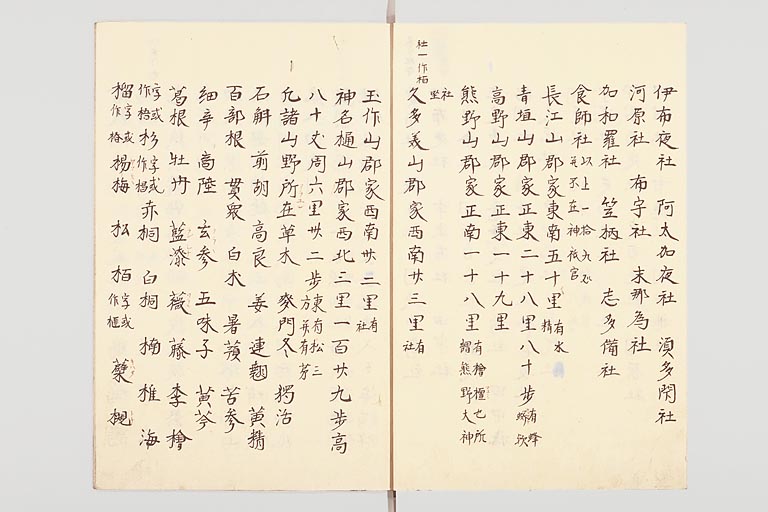 伊布夜社 阿太加夜社 湏多閇社
河原社 布宇社 末那為社
加和羅社 笠柄社 志多備社
食師社 以上一拾九所並不在神祇官
長江山郡家東南五十里 有水精
青垣山郡家正東二十八里八十歩 有烽
高野山郡家正東一十九里
熊野山郡家正南一十八里 有檜檀也所謂熊野大神社坐
久多美山郡家西南廿三里 有社
社一作栢
玉作山郡家西南廿二里 有社
神名樋山郡家西北三里一百廿九歩高
八十丈周六里卅二歩 東有松三方並有茅
允諸山野所在草木 麥門冬 獨活
石斛 前胡 高良姜 連翹 黄精
百部根 貫衆 白朮 暑蕷 苦参
細辛 商陸 玄参 五味子 黄芩
葛根 牡丹 藍漆 薇 藤 李 檜
字或作梧 杉 字或作椙 赤桐 白桐 楠 椎 海
榴 字或作椿 楊梅 松 栢 字或作榧 蘗 槻